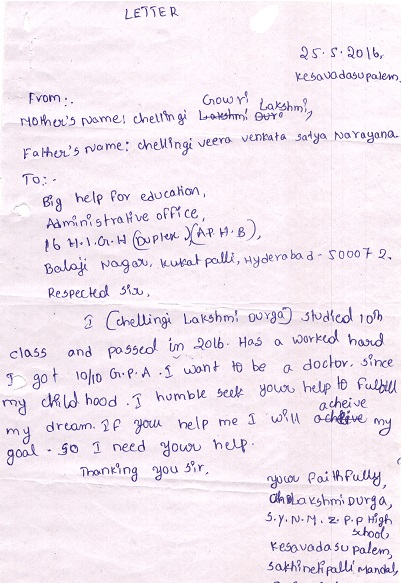 LETTER
25.5.2016,
Kesavadasupalem.
From:.
Gowri
Mother's Name: chellingi Lakshmi Dura Lakshmi,
Father's Name: chellingi veera venkata satya Narayana.
To:-
Big help for education,
Administrative office,
16 H.I.G.H (Duplex)(A.P.H.B),
Balaji Nagar, Kukatpalli, Hyderabad - 500072.
Respected sir,
I (chellingi Lakshmi Durga) studied 10th
class and passed in 2016. Has a worked hard
I got 10/10 G.P.A. I want to be a doctor. since
my child hood. I humble seek your help to fulfill
my dream. If you help me I will acheive my
goal. So I need your help.
Thanking you sir,
your faithfully,
Ch. Lakshmi Durga,
S.Y.N.M.Z.P.P High
school,
Kesavadasupalem,
sakhinetipalli mandal,